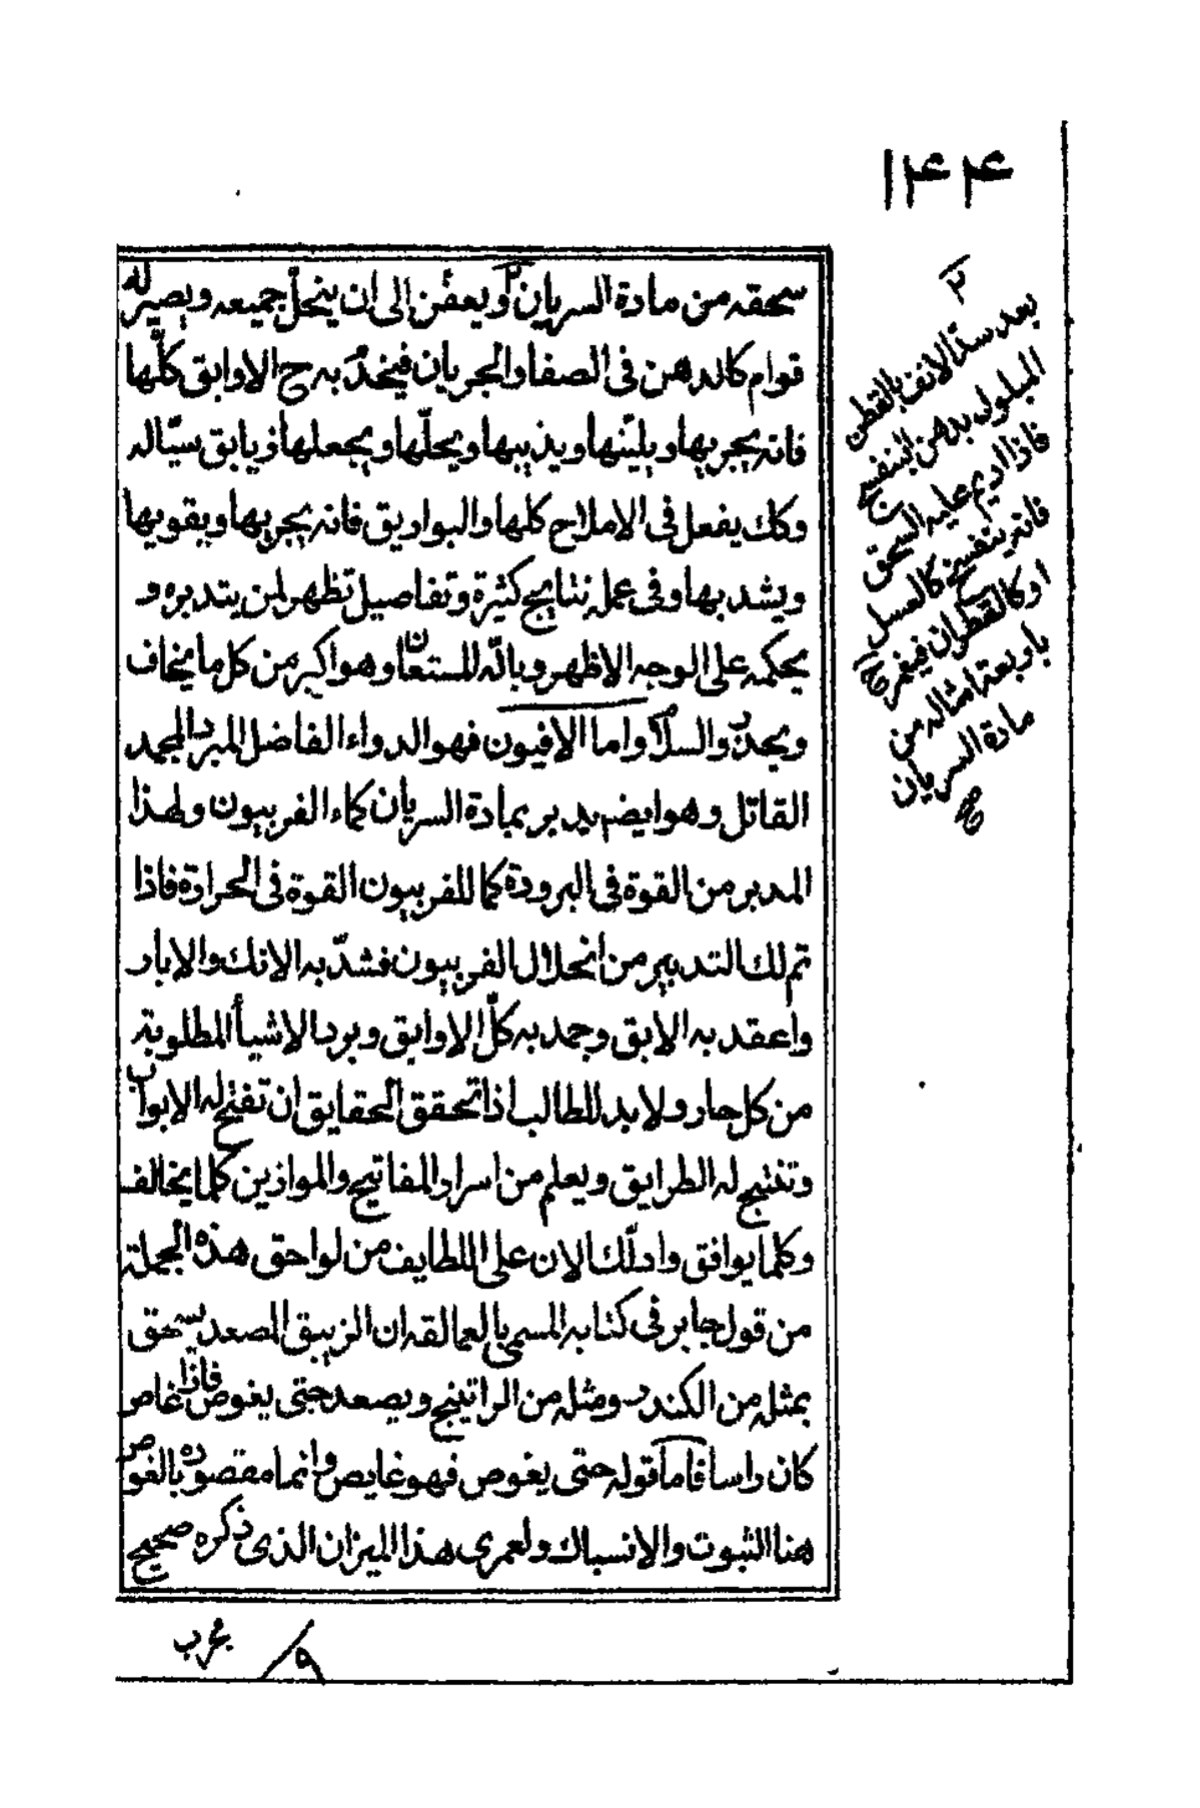 ١٤٤
سحقه من مادة السريان ٢ ويعفن إلى ان ينحل جميعه ويصير له
قوام كالدهن فى الصفا والجريان فيخدّر به ح الاوابق كلّها
فانه يجريها ويليّنها ويذيبها ويحلّها ويجعلها زيابق سيّاله
وكك يفعل فى الاملاح كلها والبواريق فانه يجريها ويقويها
ويشد بها وفى عمله نتايج كثيرة وتفاصيل تظهر لمن يتدبره و
يحكمه على الوجه الاظهر وبالله المستعان وهو اكبر من كل ما يخاف
ويحذر والسلام واما الافيون فهو الدواء الفاضل المبرد المجمد
القاتل وهو ايضم يدبر بمادة السريان كماء الفربيون ولهذا
المدبر من القوة فى البرودة كما للفربيون القوة فى الحرارة فاذا
تم لك التدبير من انحلال الفربيون فشدّ به الانك والابار
واعقد به الابق وجمد به كلّ الاوابق وبرد الاشيأ المطلوبة
من كل حار ولا بد للطالب اذا تحقق الحقايق ان تفتح له الابواب
وتنتج له الطرايق ويعلم من اسرار المفاتيح والموازين كلما يخالف
وكلما يوافق وادلّك الان على اللطايف من لواحق هذه الجملة
من قول جابر فى كتابه المسمى بالعمالقه ان الزيبق المصعد يسحق
بمثله من الكندر ومثله من الراتينج ويصعد حتى يغوص فاذا غاص
كان راسا فاما قوله حتى يغوص فهو غايص وانما مقصوره بالغوص
هنا الثبوت والانسباك ولعمرى هذا الميزان الذى ذكره صحيح
مجرب
٢
بعد سدّ الانف بالقطن
المبلول بدهن البنفسج
فاذا اديم عليه السحق
فانه ينفسخ كالعسل
او كالقطران فيغمر
باربعة امثاله من
مادة السريان